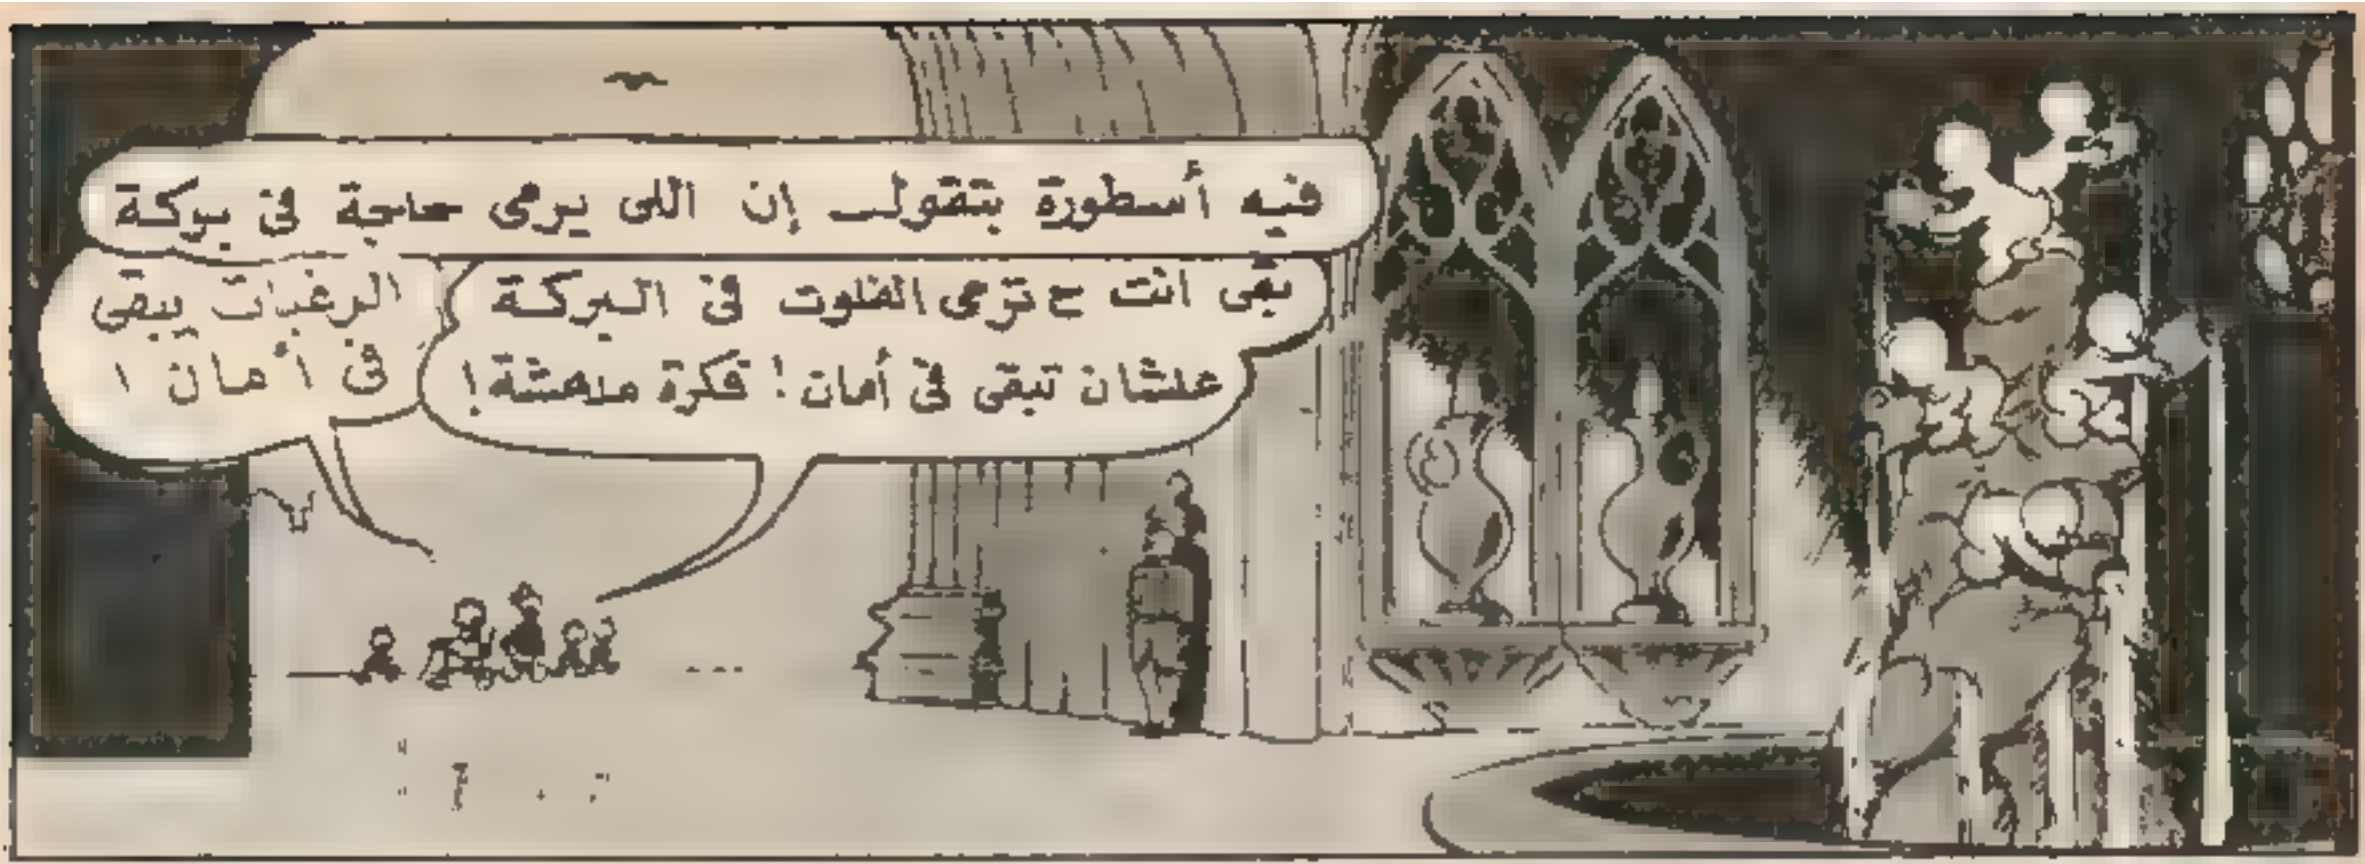 فيه أسطورة بتقول إن اللى يرمى حاجة فى بركة
الرغبات يبقى
فى أمان !
بقى انت ح ترمى الفلوت فى البركة
علشان تبقى فى أمان ! فكرة مدهشة !